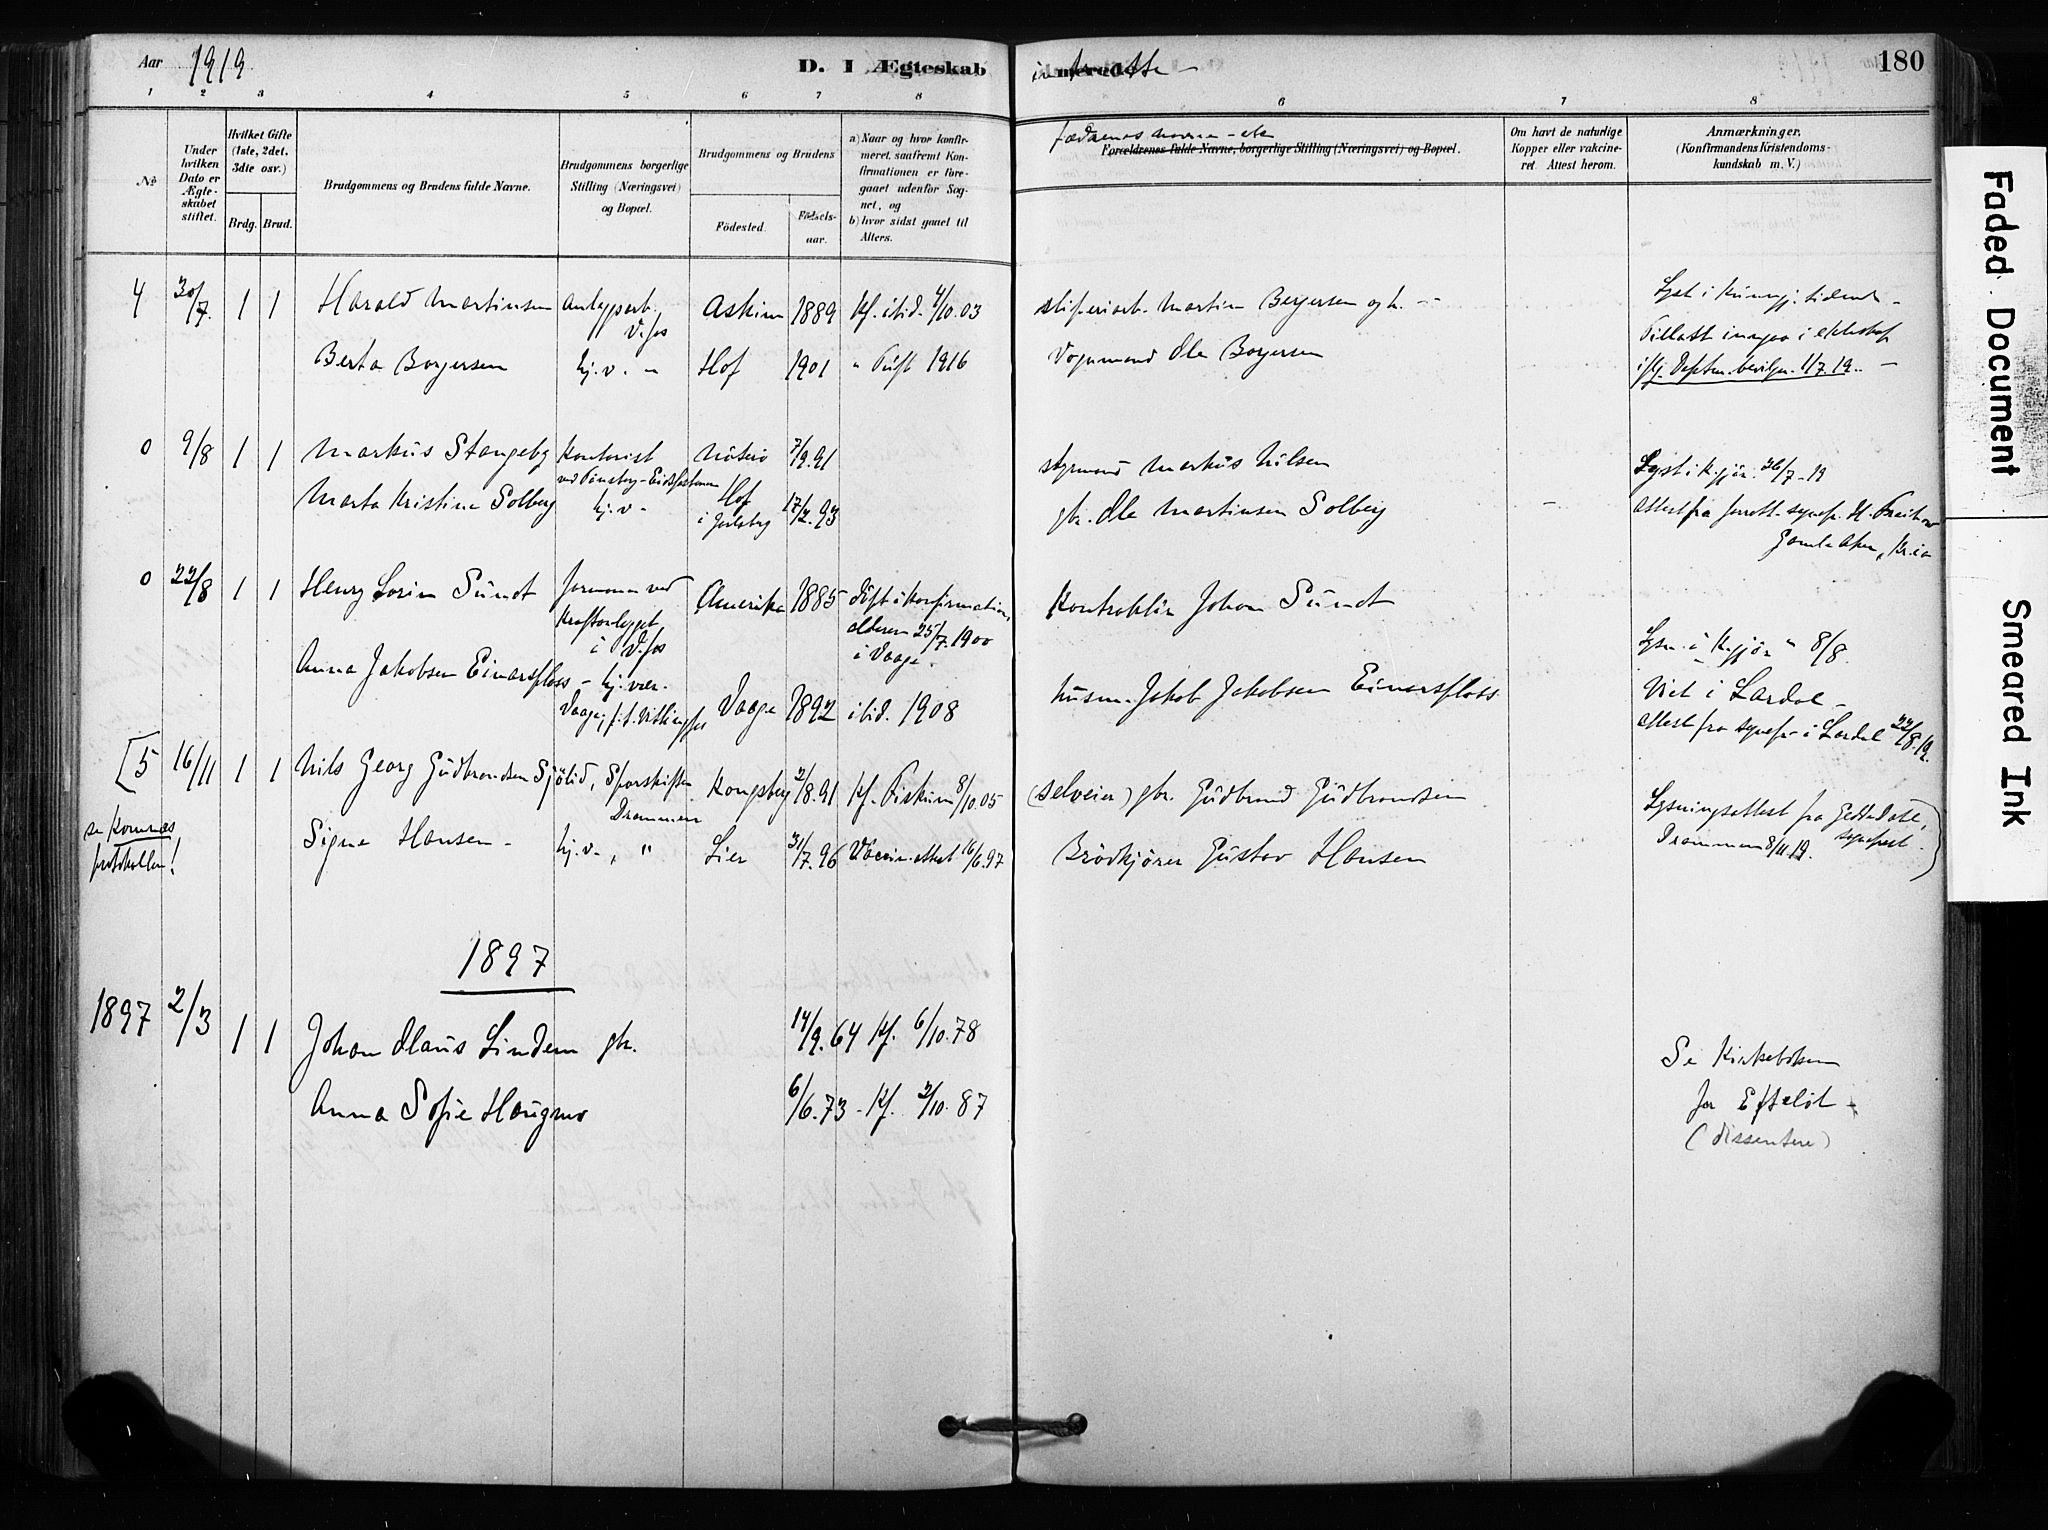 Aar 1919.
D. I Ægteskab indtrætte –
180
1 2 3 4 5 6 7 8 6 7 8
№
Under hvilken Dato er Ægteskabet stiftet.
Hvilket Gifte (1ste, 2det, 3dte osv.)
Brdg. Brud.
Brudgommens og Brudens fulde Navne.
Brudgommens borgerlige Stilling (Næringsvei) og Bopæl.
Brudgommens og Brudens
Födested. Födselsaar.
a) Naar og hvor konfirmeret, saafremt Konfirmationen er foregaaet udenfor Sognet, og
b) hvor sidst gaaet til Alters.
Fædrenes navne – etc
Forældrenes fulde Navne, borgerlige Stilling (Næringsvei) og Bopæl.
Om havt de naturlige Kopper eller vakcineret. Attest herom.
Anmærkninger.
(Konfirmandens Kristendomskundskab m. V.)
4 30/7. 1 1 Harald Martinsen Anlægsarb. V.fos Askim 1889 Kf. ibid. 4/10.03 sliperiarb. Martin Bergersen
Lyst i Kungj. tidende –
Berta Borgersen hj. v. – Hof 1901 " Tuft 1916 Vognmand Ole Borgersen
Tillatt inngaa i ekteskap
iflg. Deptm. bevilgn. 11.7.19. –
0 9/8 1 1 Markus Stangeby Kontorist Nøterø 7/9.91 styrmand Markus Nilsen
ved Tønsberg-Eidsfosbanen
Lyst i K.gjör. 26/7-19
Marta Kristine Solberg hj. v – Hof i Jarlsberg 17/2.93 gbr. Ole Martinsen Solberg
Attest fra
Gamle Aker, Kr.ia
0 22/8 1 1 Henry Lorin Sundt formann ved Kraftanlegget i V.fos Amerika 1885 döpt i konfirmations alderen 25/7.1900 i Vaage. Kontrollör Johan Sundt
Lysn. i K.gjör " 8/8
Anna Jakobsen Einarsflaas – hj. vær. Vaage, f. t. Vittingfos Vaage 1892 ibid. 1908 husm. Jakob Jakobsen Einarsflass
Viet i Lardal –
Attest fra sognepr. i Lardal 22/8.19.
[5 16/11 1 1 Nils Georg Gudbrandsen Sjölid, Sporskifter Drammen Kongsberg 2/8.91 Kf. Fiskum 8/10.05 (selveier) gbr. Gudbrand Gudbrandsen
se Komnes protokollen!
Lysningsattest fra
Signe Hansen – hj. v –, " Lier 31/7.96 Vaccin. attest 16/6.97 Brödkjörer Gustav Hansen
Drammen 8/11.19. sogneprest.)
1897
1897 2/3 1 1 Johan Olaus Lindem gbr. 14/9.64 Kf. 6/10.78
Se Kirkeboken
Anna Sofie Haugmo 6/6.73 – Kf. 2/10.87
for Efteløt –
(dissentere)
Faded Document
Smeared Ink